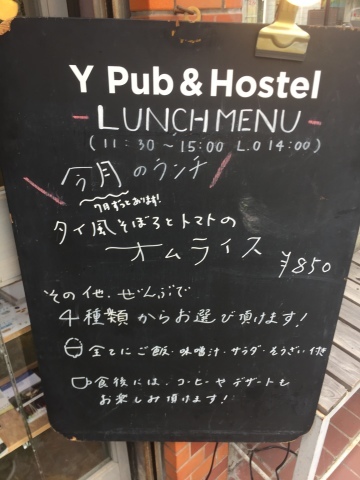 Y Pub & Hostel
LUNCH MENU
(11:30~15:00 L.O 14:00)
今月のランチ
7月ずっとあります!
タイ風そぼろとトマトの
オムライス
¥850
その他、ぜんぶで
4種類からお選び頂けます!
全てにご飯・味噌汁・サラダ・そうざい付き
食後には、コーヒーやデザートも
お楽しみ頂けます!